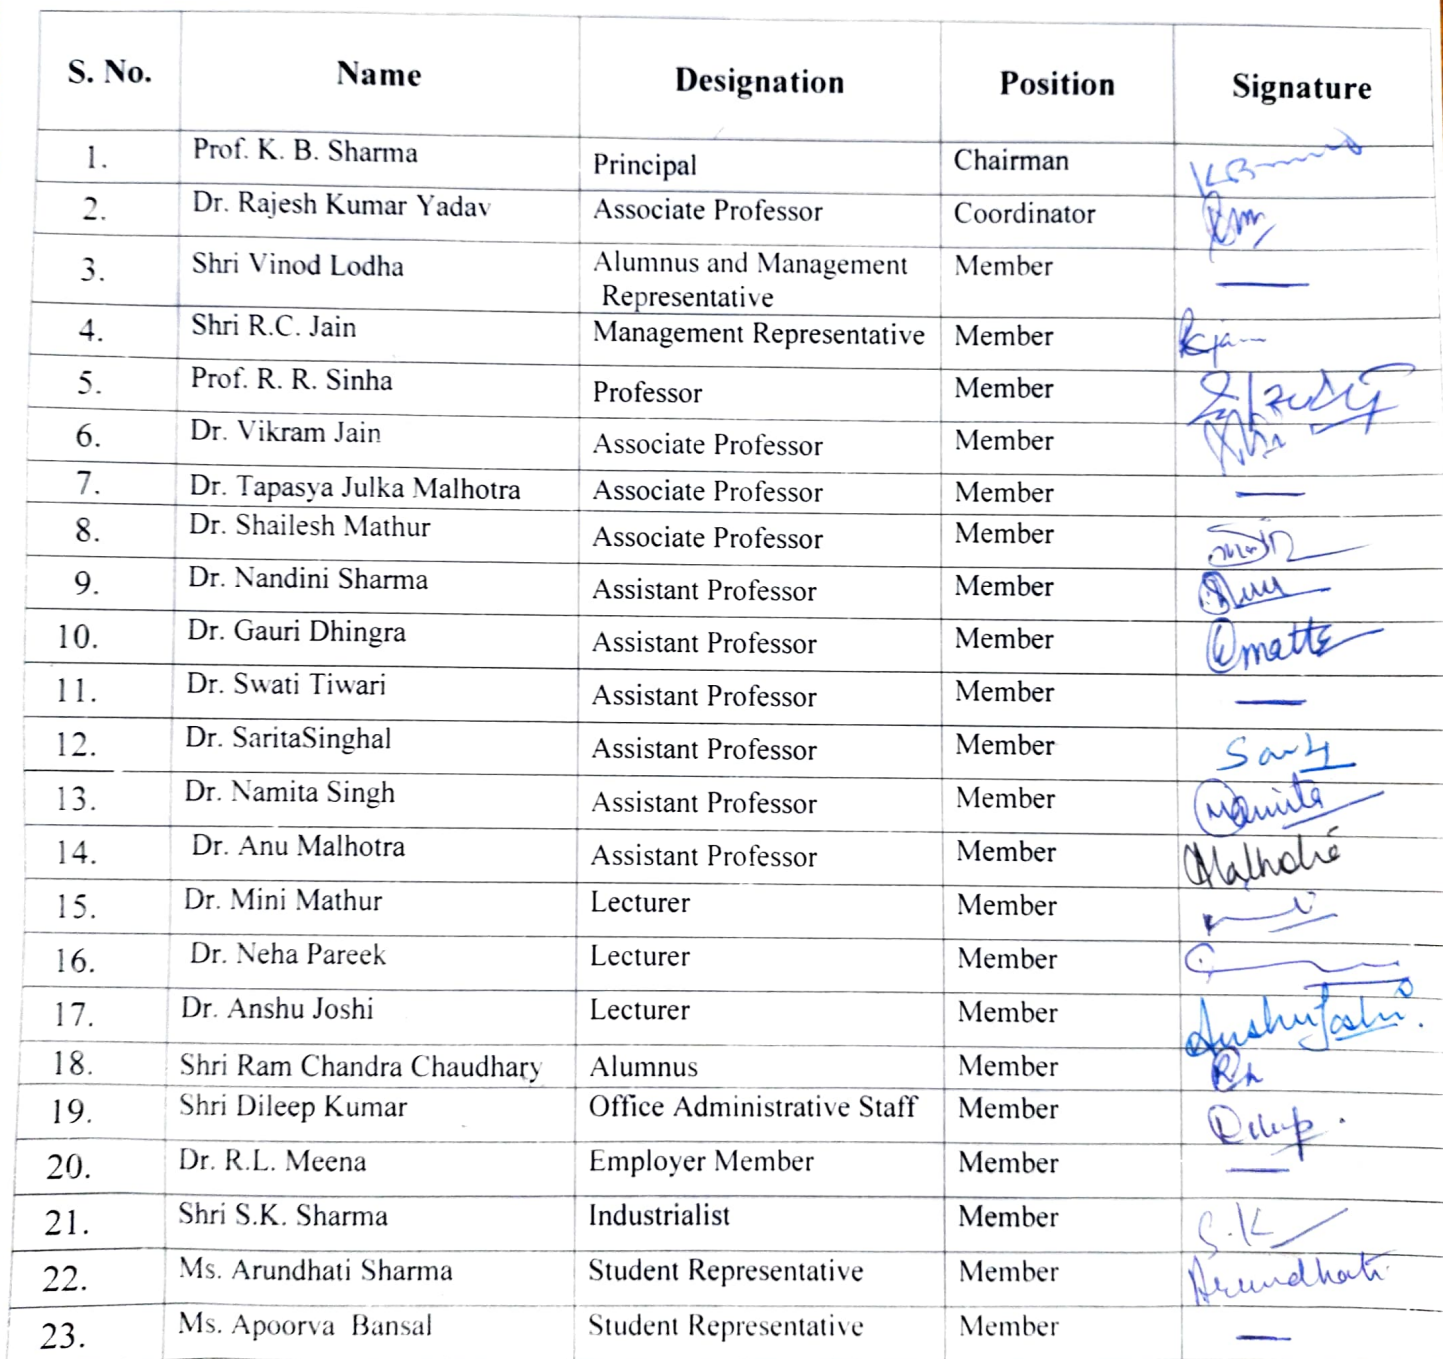 S. No. Name Designation Position Signature
1. Prof. K. B. Sharma Principal Chairman
2. Dr. Rajesh Kumar Yadav Associate Professor Coordinator
3. Shri Vinod Lodha Alumnus and Management Member —
Representative
4. Shri R.C. Jain Management Representative Member
5. Prof. R. R. Sinha Professor Member
6. Dr. Vikram Jain Associate Professor Member
7. Dr. Tapasya Julka Malhotra Associate Professor Member —
8. Dr. Shailesh Mathur Associate Professor Member
9. Dr. Nandini Sharma Assistant Professor Member
10. Dr. Gauri Dhingra Assistant Professor Member
11. Dr. Swati Tiwari Assistant Professor Member —
12. Dr. SaritaSinghal Assistant Professor Member
13. Dr. Namita Singh Assistant Professor Member Namita
14. Dr. Anu Malhotra Assistant Professor Member
15. Dr. Mini Mathur Lecturer Member
16. Dr. Neha Pareek Lecturer Member
17. Dr. Anshu Joshi Lecturer Member Anshu Joshi.
18. Shri Ram Chandra Chaudhary Alumnus Member
19. Shri Dileep Kumar Office Administrative Staff Member
20. Dr. R.L. Meena Employer Member Member —
21. Shri S.K. Sharma Industrialist Member S.K
22. Ms. Arundhati Sharma Student Representative Member Arundhati
23. Ms. Apoorva Bansal Student Representative Member —